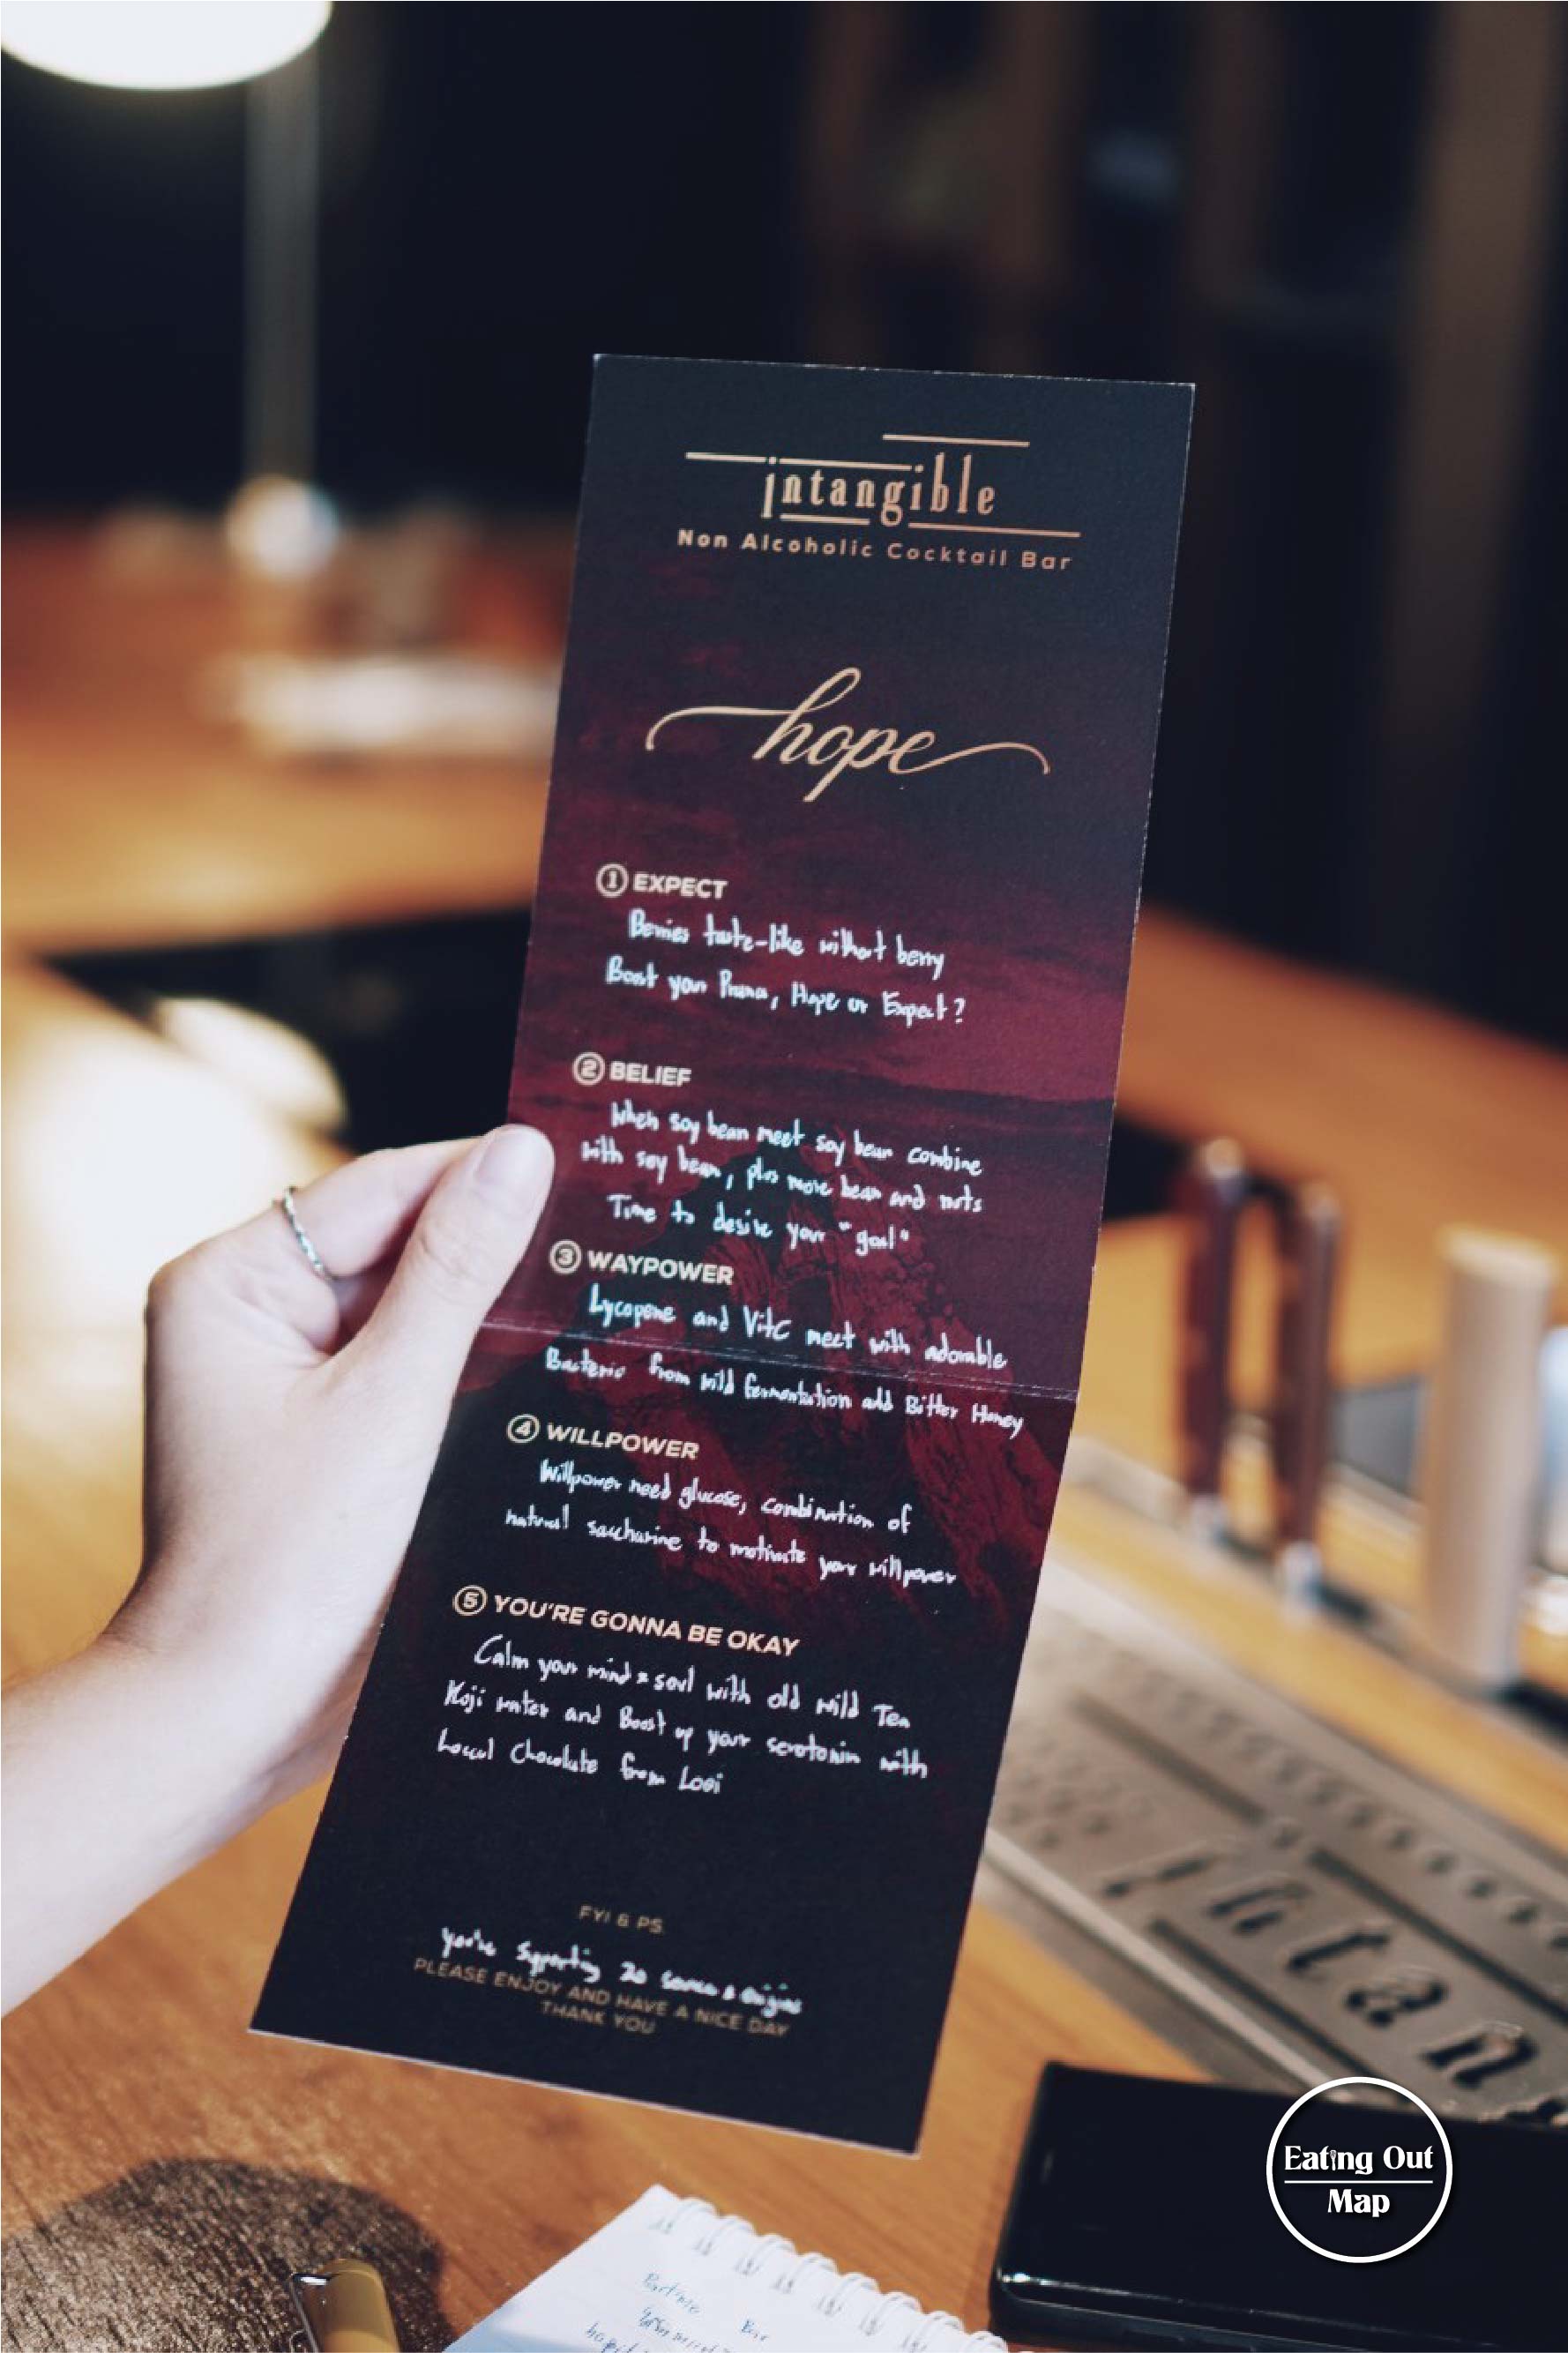 intangible
Non Alcoholic Cocktail Bar
hope
1 EXPECT
Berries taste-like without berry
Boost your Prana, Hope or Expect?
2 BELIEF
When soy bean meet soy bean combine
with soy bean, plus more bean and nuts
Time to desire your "goal"
3 WAYPOWER
Lycopene and VitC meet with adorable
Bacteria from wild fermentation add Bitter Honey
4 WILLPOWER
Willpower need glucose, combination of
natural saccharine to motivate your willpower
5 YOU'RE GONNA BE OKAY
Calm your mind & soul with old wild Tea
Koji water and Boost up your serotonin with
Local Chocolate from Loei
FYI & PS.
you're supporting 20 & origins
PLEASE ENJOY AND HAVE A NICE DAY
THANK YOU
intan
Eating Out
Map
Bar